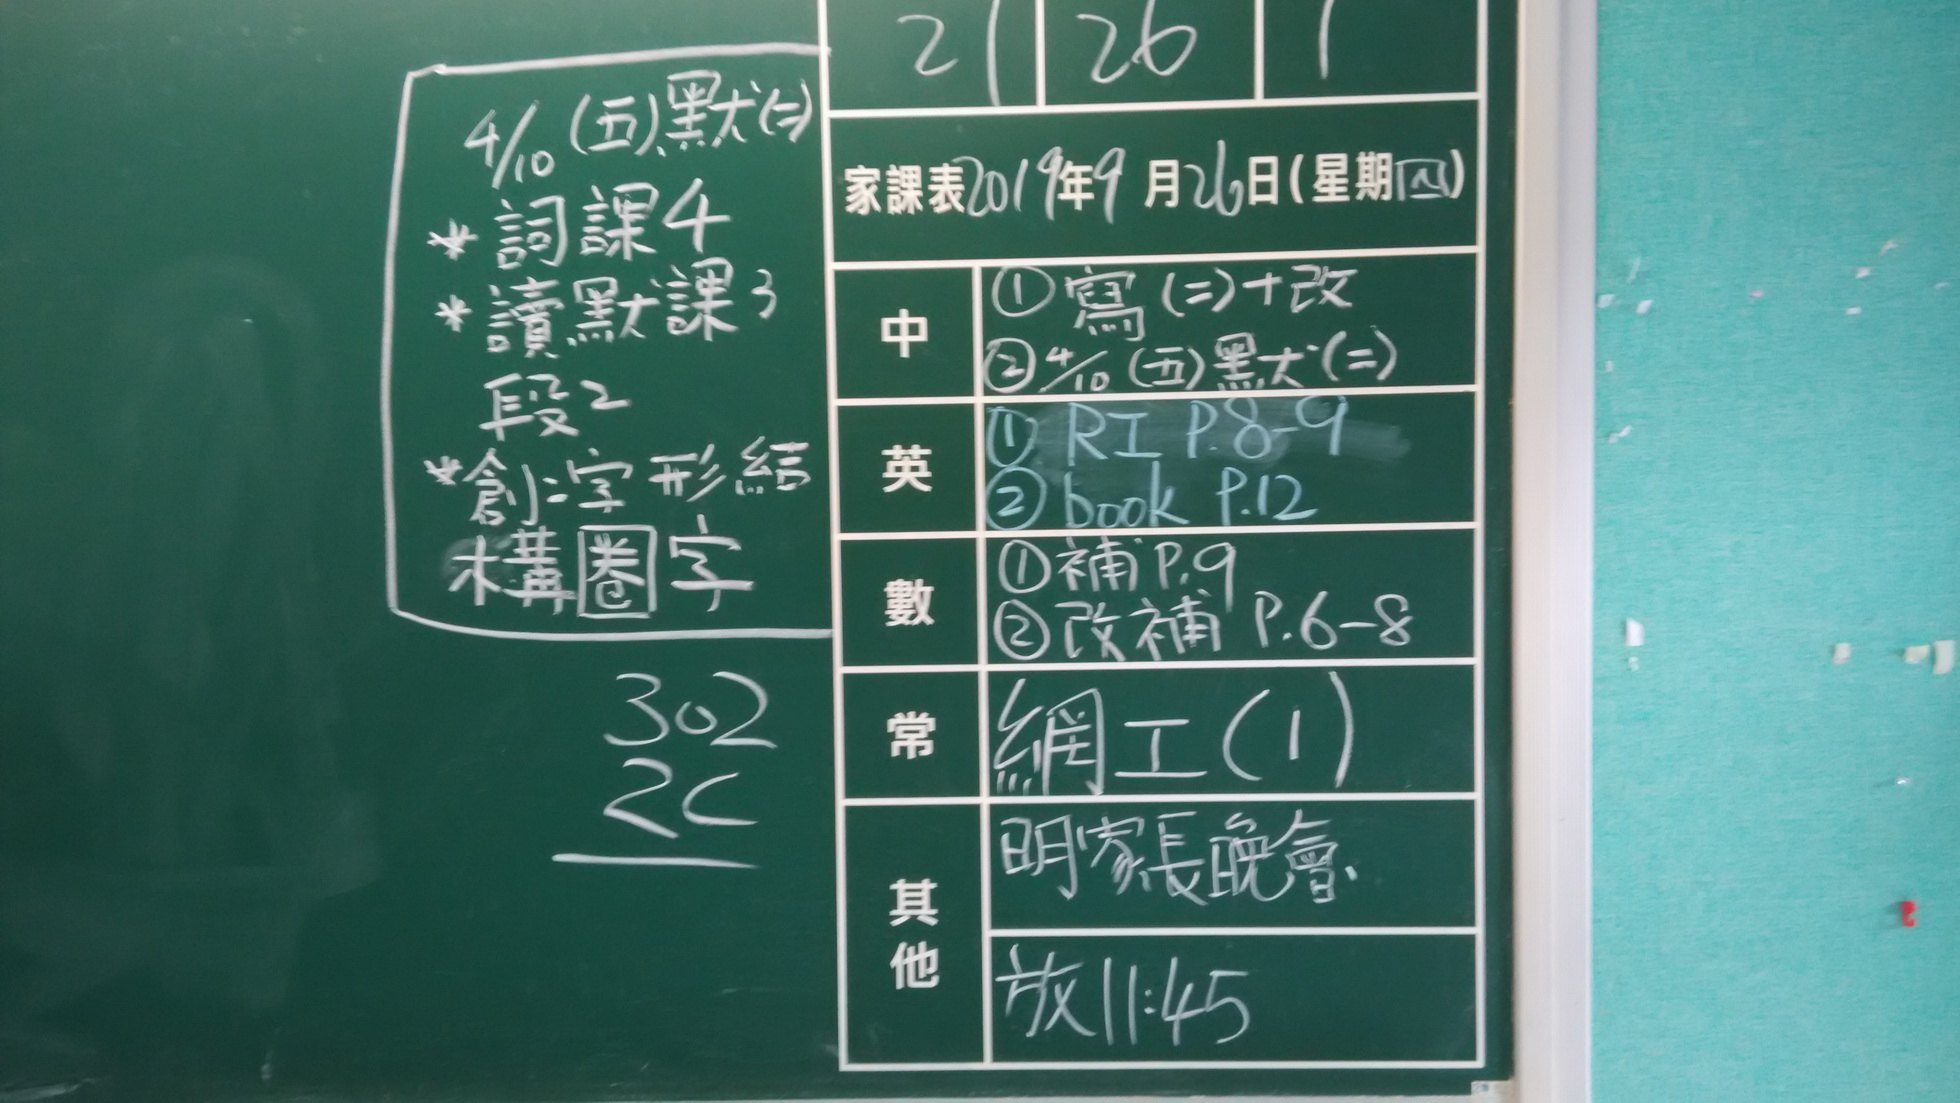 21 26 1
4/10 (五)默(二)
* 詞課4
* 讀默課3
段2
* 創:字形結
構圈字
302
2C
家課表2019年9月26日(星期四)
中
① 寫(二)+改
② 4/10 (五)默(二)
英
① RI P.8-9
② book P.12
數
① 補P.9
② 改補 P.6-8
常
網工(1)
其他
明家長晚會
放11:45